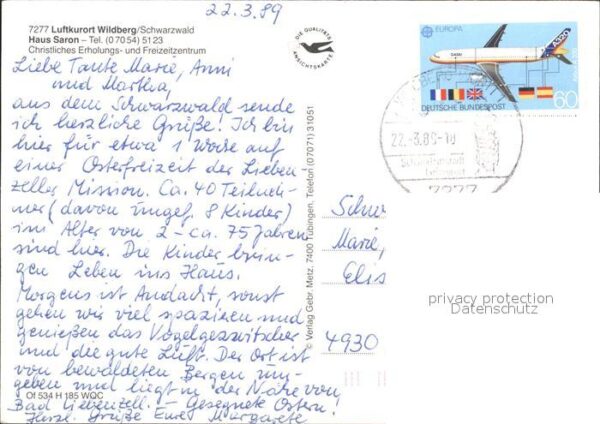 22.3.89
7277 Luftkurort Wildberg/Schwarzwald
Haus Saron – Tel. (07054) 5123
Christliches Erholungs- und Freizeitzentrum
DIE QUALITÄTS
ANSICHTSKARTE
Liebe Tante Marie, Anni
und Martha,
aus dem Schwarzwald sende
ich herzliche Grüße! Ich bin
hier für etwa 1 Woche auf
einer Osterfreizeit der Lieben-
zeller Mission. Ca. 40 Teilneh-
mer (davon ungef. 8 Kinder)
im Alter von 2 – ca. 75 Jahren
sind hier. Die Kinder brin-
gen Leben ins Haus.
Morgens ist Andacht, sonst
gehen wir viel spazieren und
genießen das Vogelgezwitscher
und die gute Luft. Der Ort ist
von bewaldeten Bergen um-
geben und liegt in der Nähe von
Bad Liebenzell. – Gesegnete Ostern!
Herzl. Grüße Eure Margarete
Of 534 H 185 WQC
© Verlag Gebr. Metz, 7400 Tübingen, Telefon (07071) 31051
EUROPA
A320
DEUTSCHE BUNDESPOST
60
22.-3.89-10
7277
Schw
Marie,
Elis
4930
privacy protection
Datenschutz